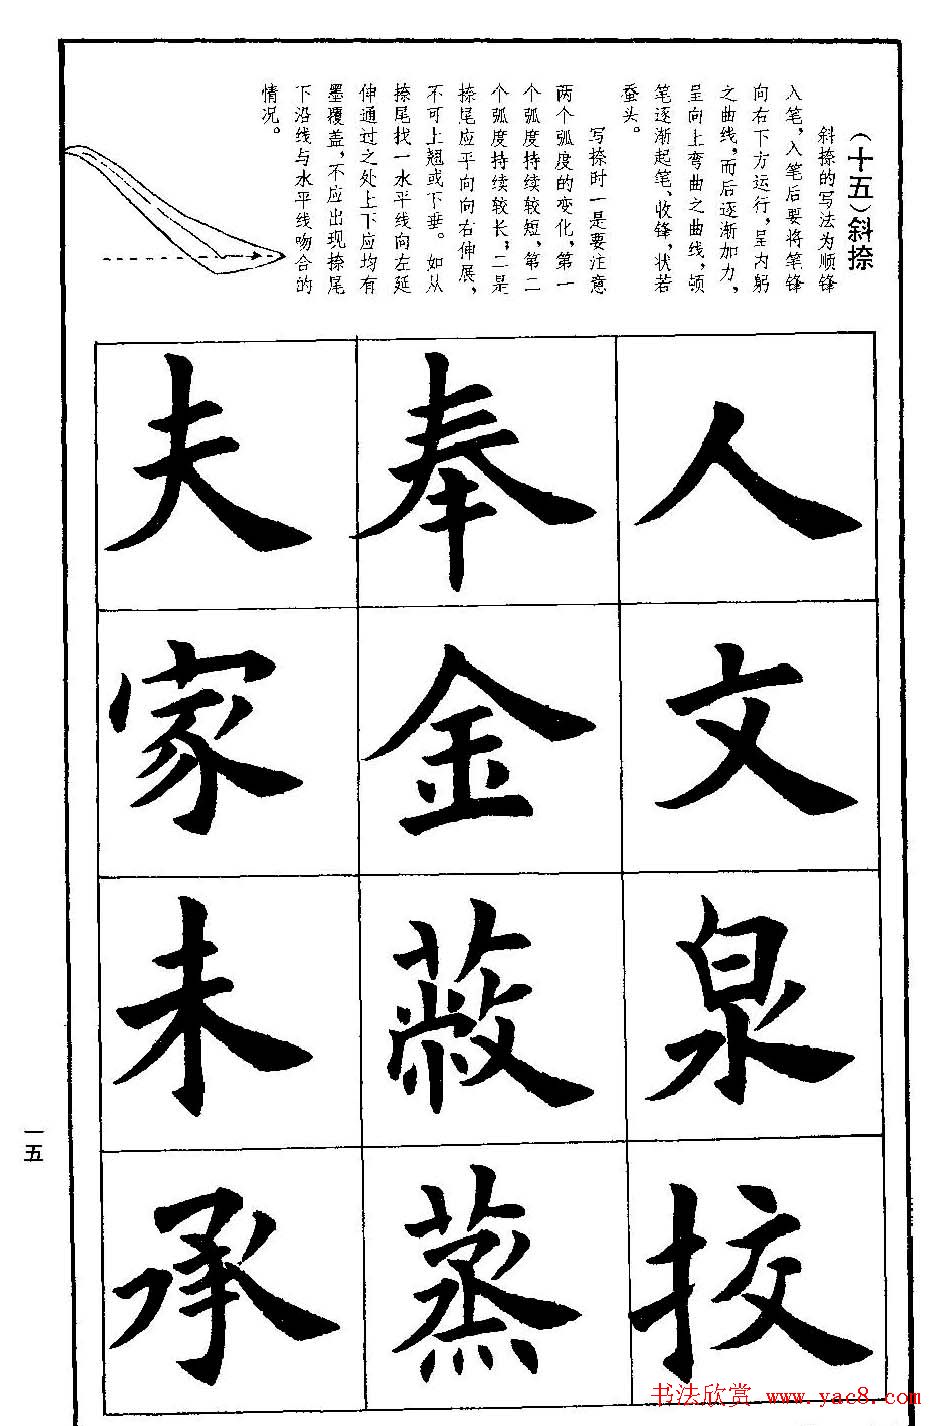 (十五)斜捺
斜捺的写法为顺锋
入笔,入笔后要将笔锋
向右下方运行,呈内躬
之曲线,而后逐渐加力,
呈向上弯曲之曲线,顿
笔逐渐起笔、收锋,状若
蚕头。
写捺时一是要注意
两个弧度的变化,第一
个弧度持续较短,第二
个弧度持续较长;二是
捺尾应平向向右伸展,
不可上翘或下垂。如从
捺尾找一水平线向左延
伸通过之处上下应均有
墨覆盖,不应出现捺尾
下沿线与水平线吻合的
情况。
人文泉挍
奉金蔽蒸
夫家未承
一五
书法欣赏 www.yac8.com